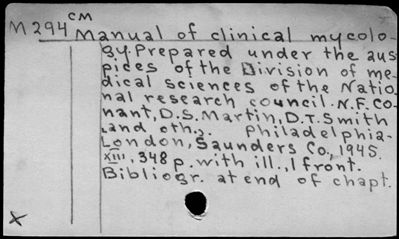 CM
M294 Manual of clinical mycolo-
gy. Prepared under the aus-
pices of the Division of me-
dical sciences of the Natio-
nal research council. N.F. Co-
nant, D.S. Martin, D.T. Smith
and oth. Philadelphia-
London, Saunders Co., 1945.
XIII, 348 p. with ill., 1 front.
Bibliogr. at end of chapt.
X